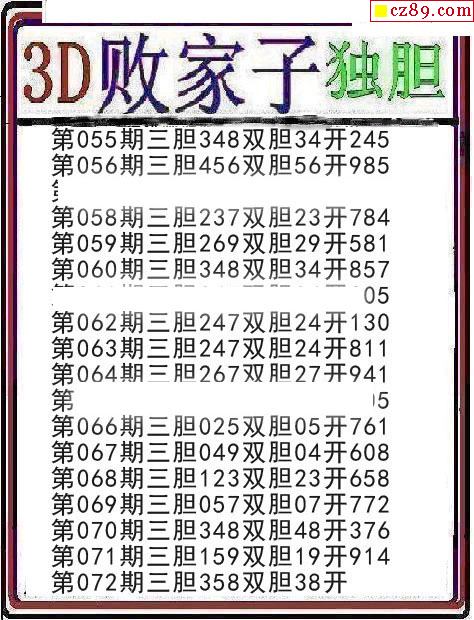 cz89.com
3D败家子独胆
第055期三胆348双胆34开245
第056期三胆456双胆56开985
第058期三胆237双胆23开784
第059期三胆269双胆29开581
第060期三胆348双胆34开857
05
第062期三胆247双胆24开130
第063期三胆247双胆24开811
第064期三胆267双胆27开941
第 05
第066期三胆025双胆05开761
第067期三胆049双胆04开608
第068期三胆123双胆23开658
第069期三胆057双胆07开772
第070期三胆348双胆48开376
第071期三胆159双胆19开914
第072期三胆358双胆38开